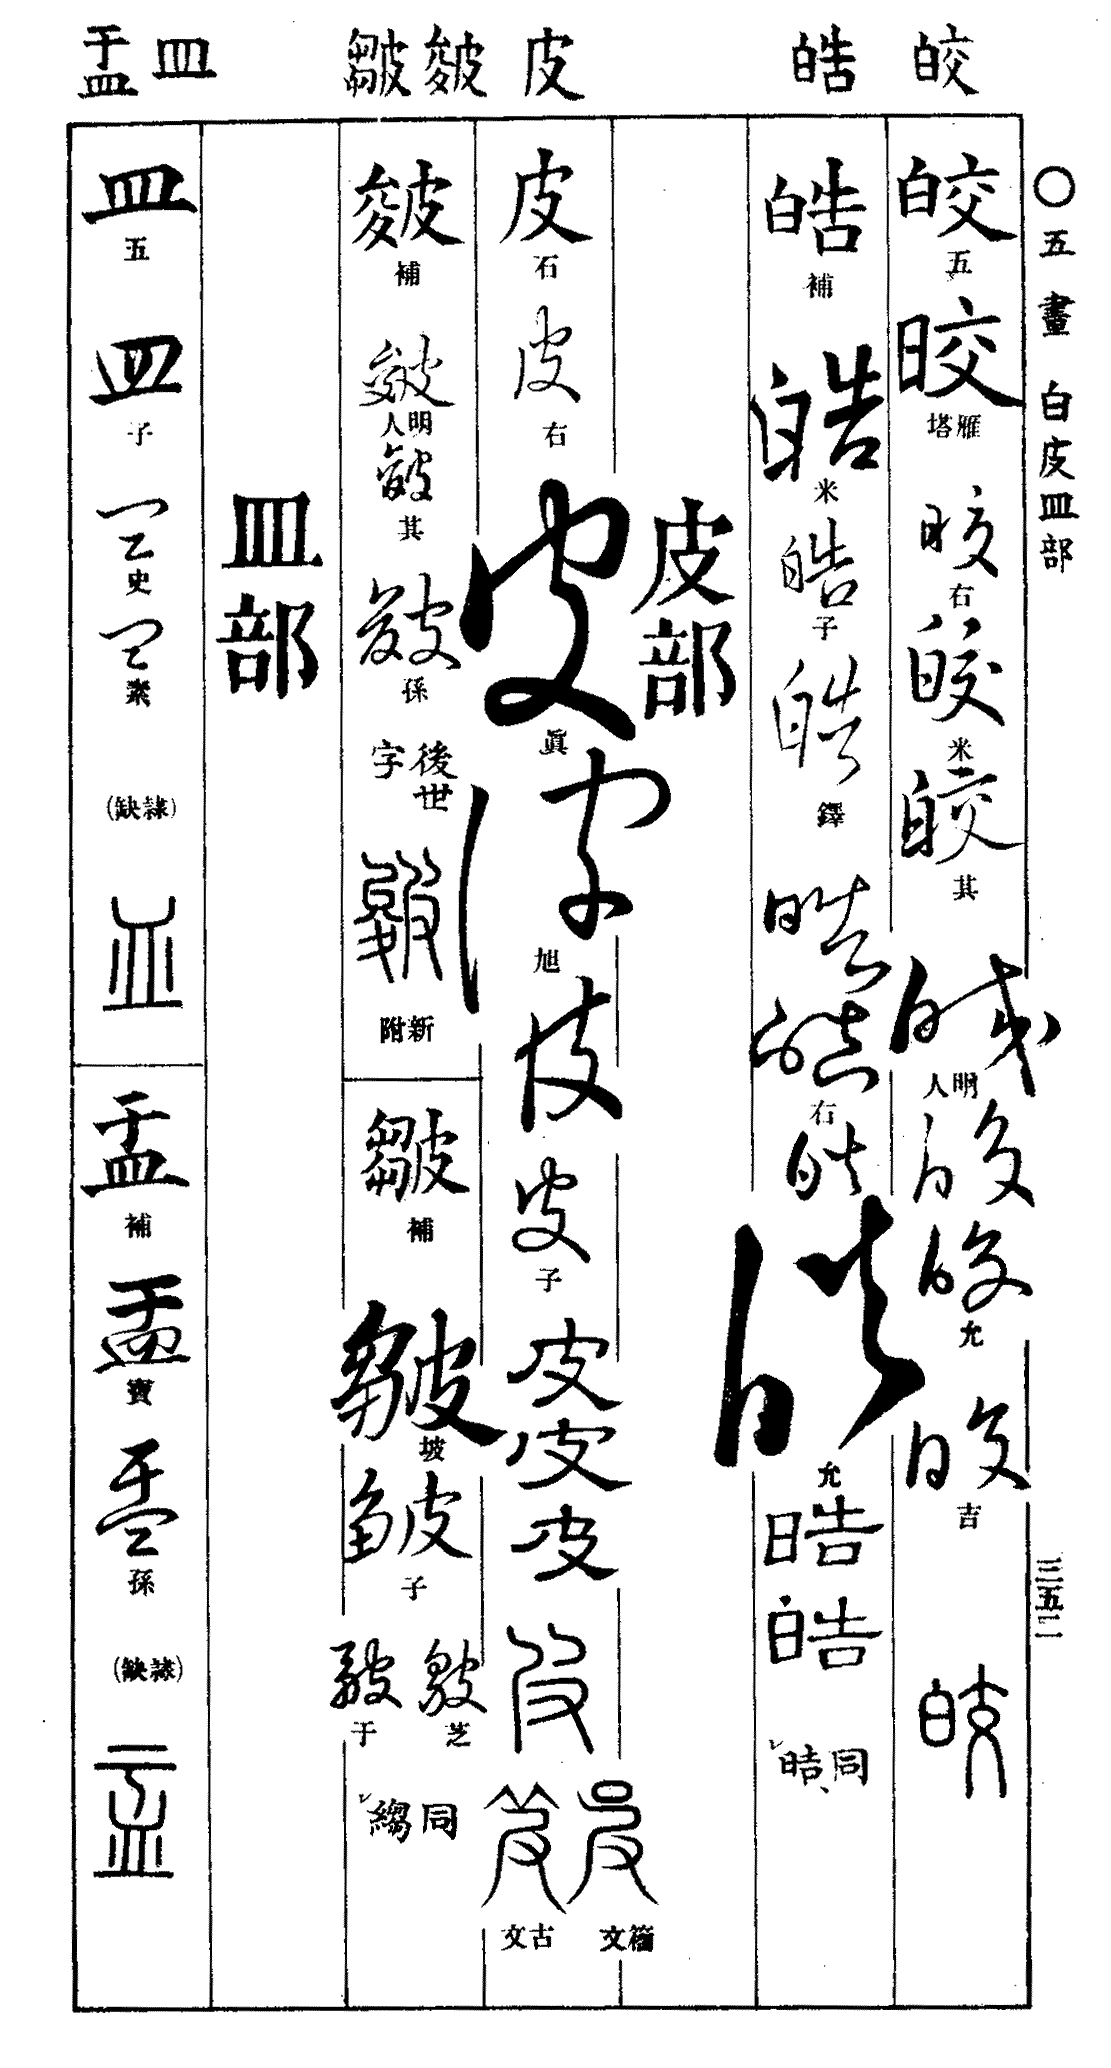 皎 皓 皮 皴 皺 皿 盂
○五畫 白皮皿部 三五二
皎 五
皎 雁塔
皎 右
皎 米
皎 其
皎 明人
皎
皎 允
皎 吉
皎
皓 補
皓 米
皓 子
皓 鐸
皓
皓 右
皓
皓 允
皓
皓
同晧
皮部
皮 石
皮 右
皮 眞
皮 旭
皮
皮 子
皮
皮
皮
皮
皮 籀文
皮 古文
皴 補
皴 明人
皴 其
皴 孫
後世字
皴 新附
皺 補
皺 坡
皺 子
皺 芝
皺 于
同縐
皿部
皿 五
皿 子
皿 史
皿 素
(隸缺)
皿
盂 補
盂 寶
盂 孫
(隸缺)
盂